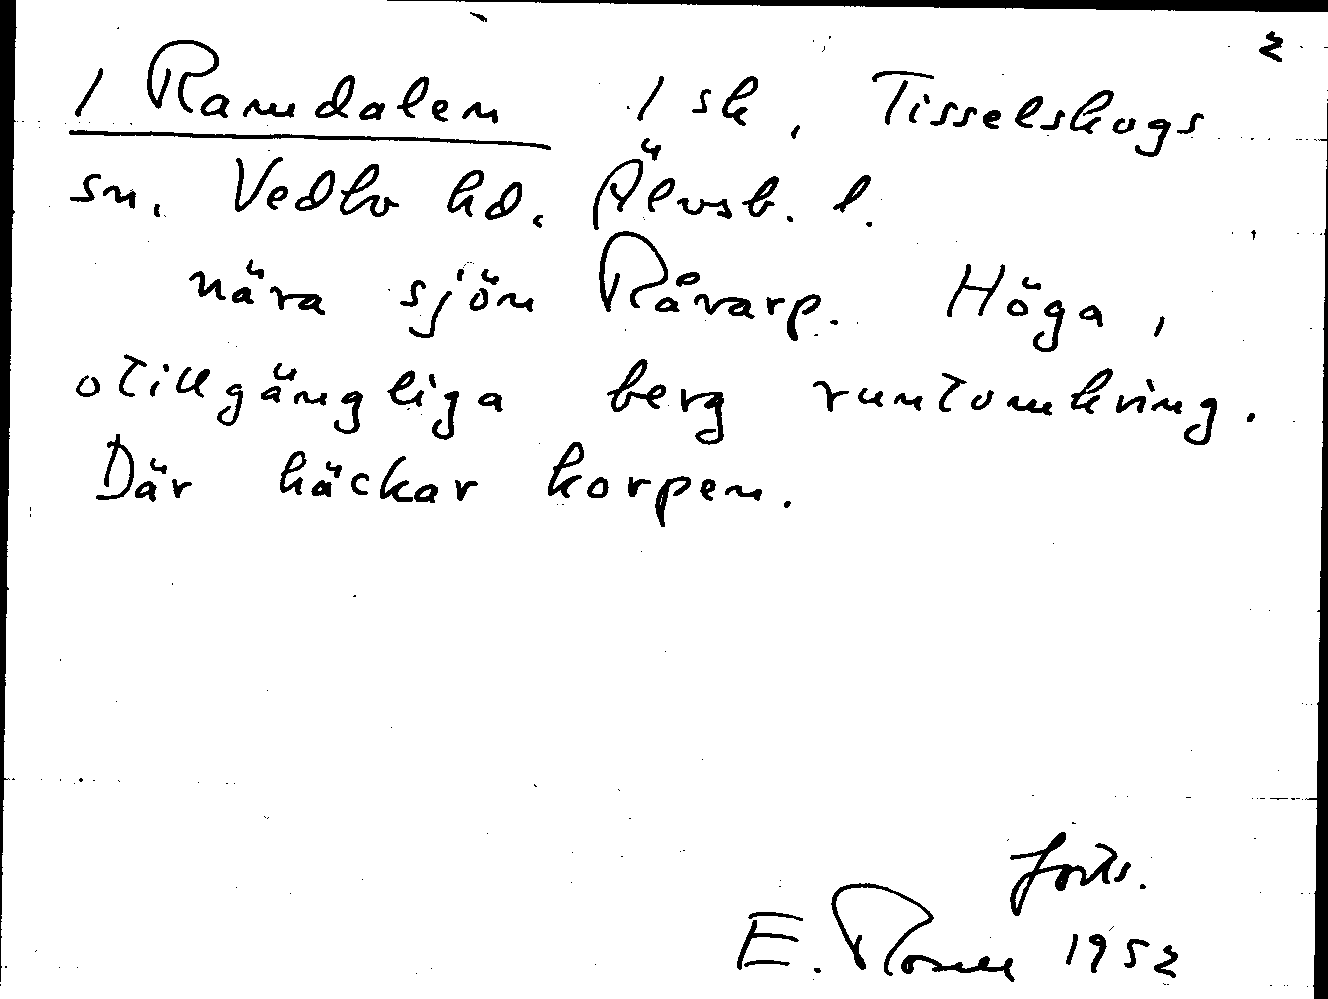 2
1 Ramdalen 1 sk, Tisselskogs
sn. Vedbo hd. Älvsb. l.
nära sjön Råvarp. Höga,
otillgängliga berg runtomkring.
Där häckar korpen.
forts.
E. Rosell 1952